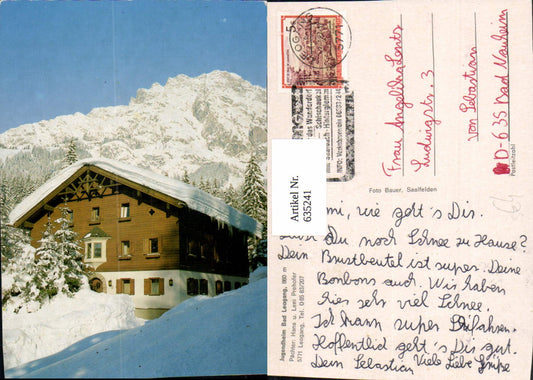 5 S
LEOGANG
5771
das Wanderdorf
Saalbach Hinterglemm
Artikel Nr.
635241
Frau Angelika Lentz
Ludwigstr. 3
von Sebastian
D-635 Bad Nauheim
Postleitzahl
Foto Bauer, Saalfelden
Jugendheim Bad Leogang, 860 m
Pächter: Hans u. Lemi Prehofer
5771 Leogang, Tel. 0 65 83/207
wie geht's Dir.
Du noch Schnee zu Hause?
Dein Brustbeutel ist super. Deine
Bonbons auch. Wir haben
hier sehr viel Schnee.
Ich kann super Skifahren.
Hoffentlich geht's Dir gut.
Dein Sebastian Viele Liebe Grüße